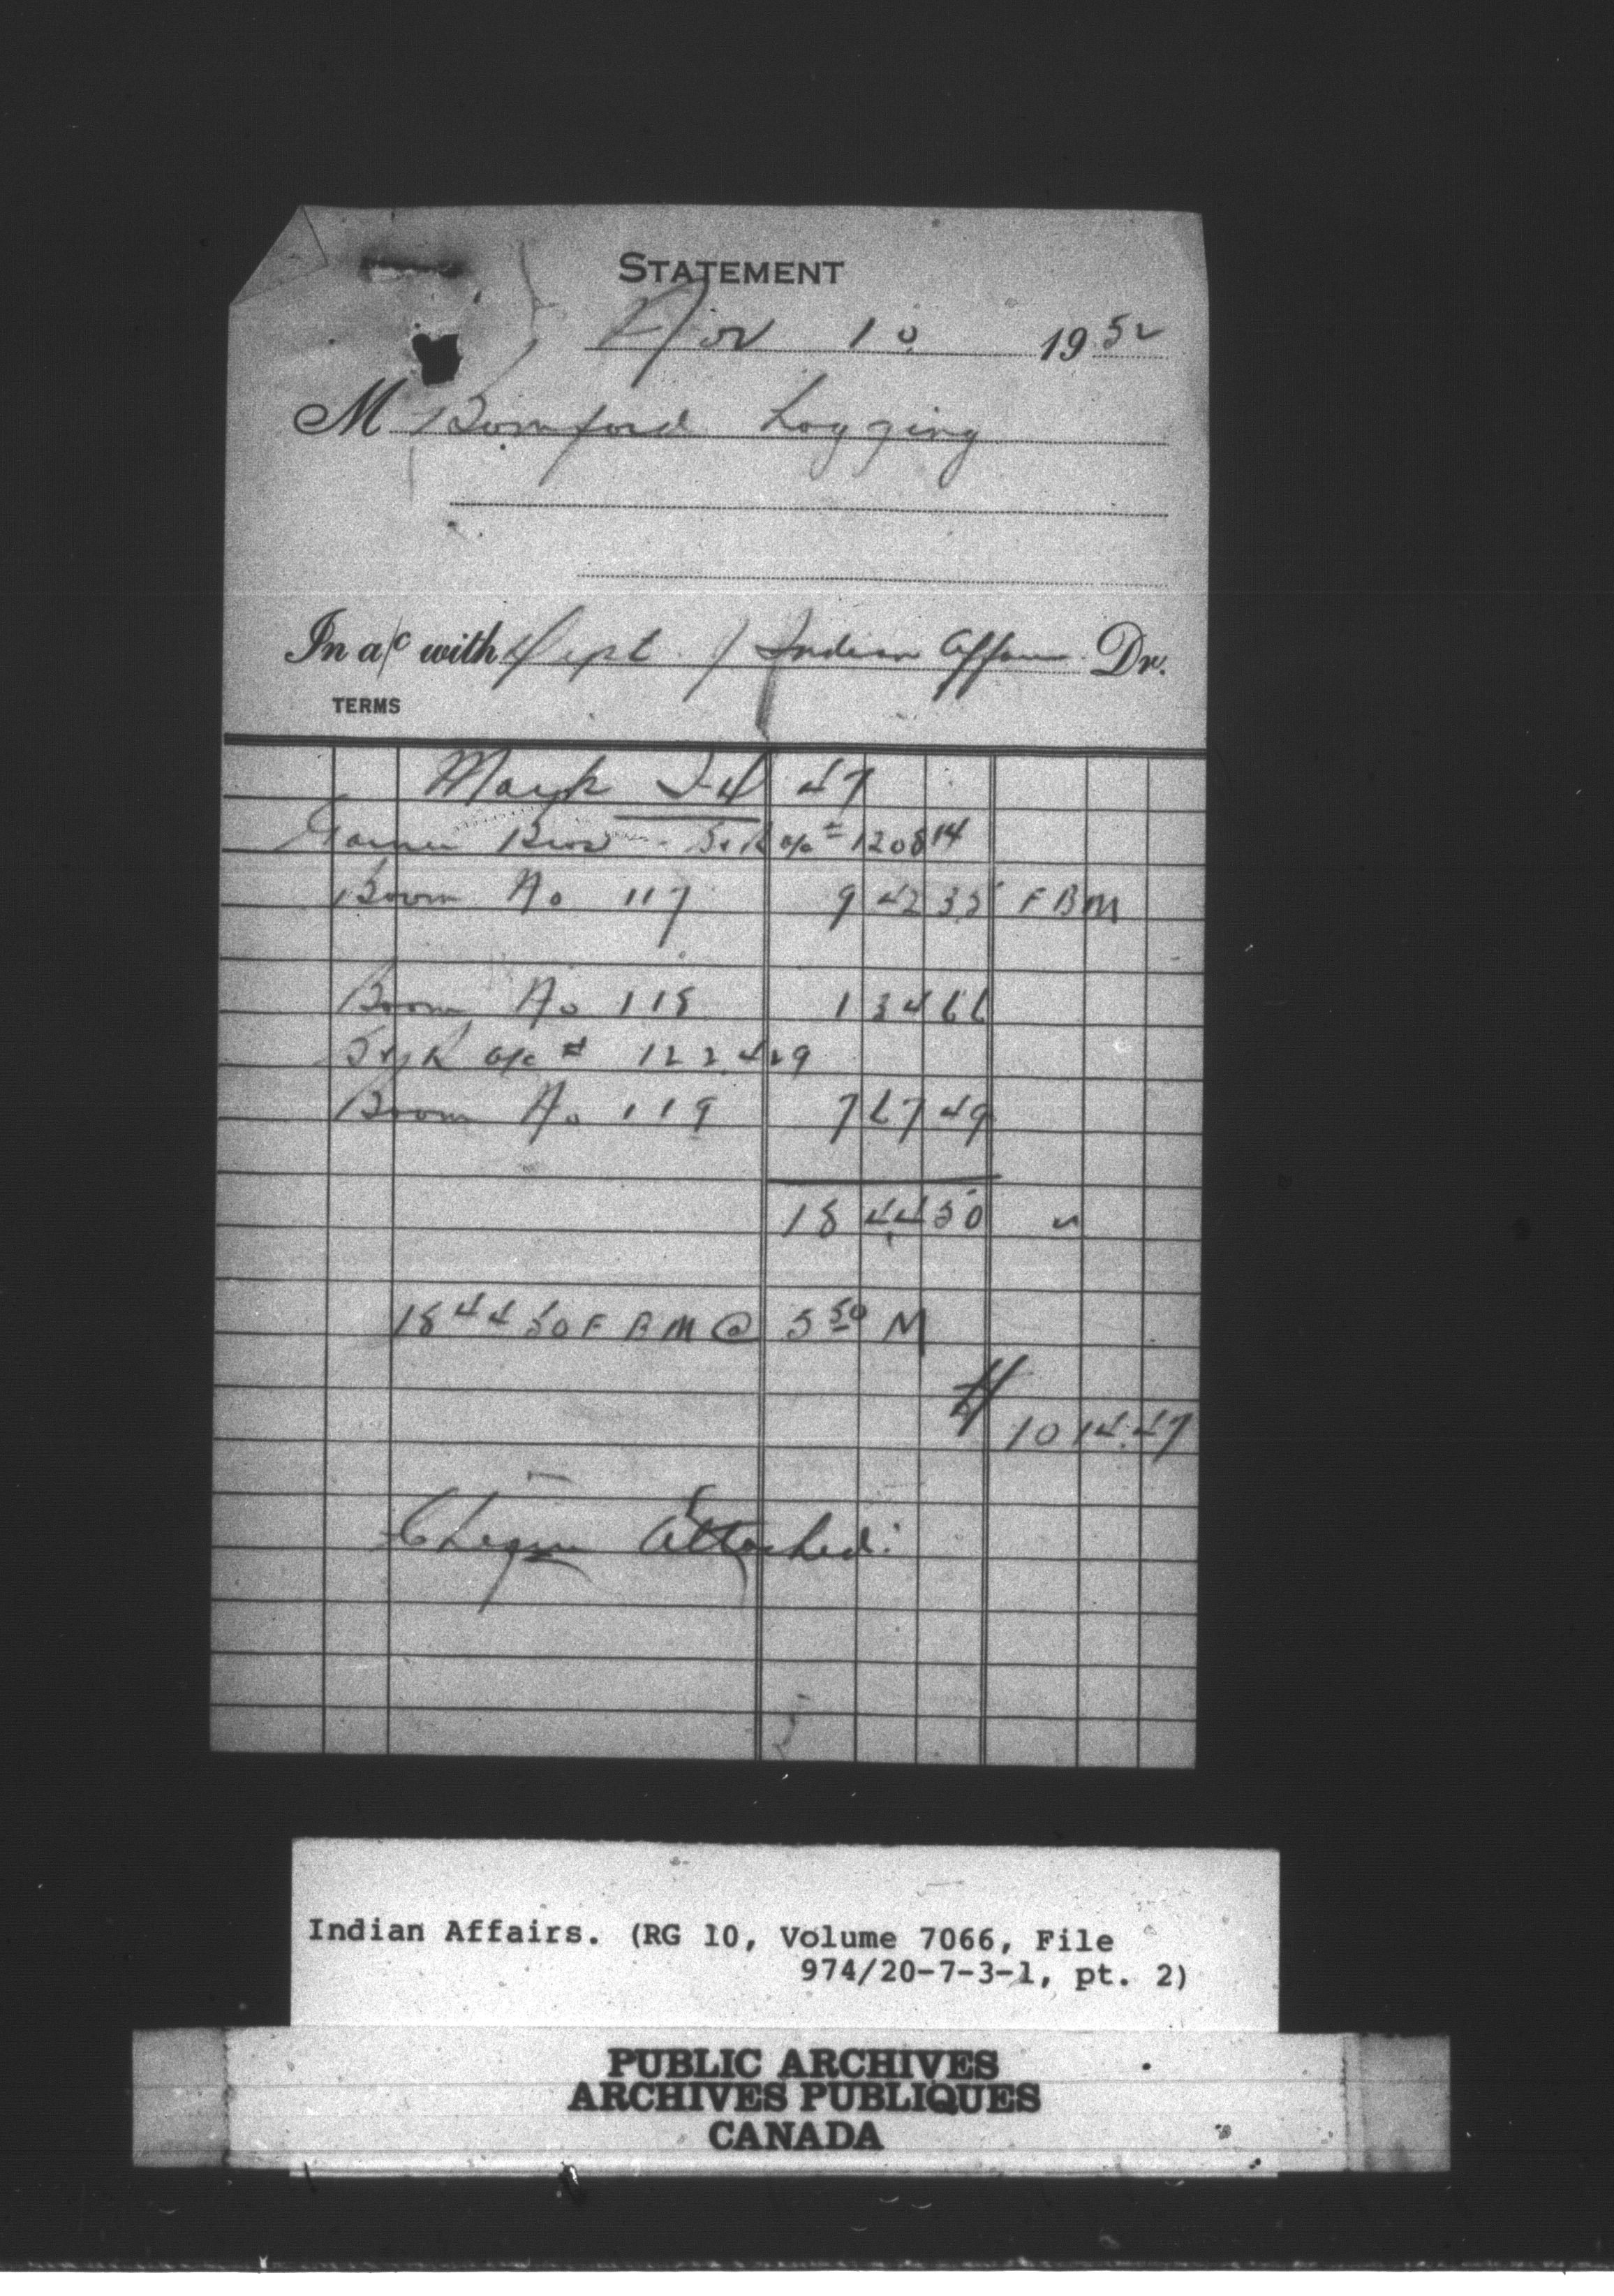 STATEMENT
Nov 10 1952
M Bomford Logging
In a/c with Dept of Indian Affairs Dr.
TERMS
Mark I-4 47
Bros S&R a/c # 120814
Boom No 117 94235 FBM
Boom No 118 13466
S&R a/c # 122429
Boom No 119 76749
184450 "
184450 FBM @ 5 50 M
# 1014.47
Cheque Attached.
Indian Affairs. (RG 10, Volume 7066, File
974/20-7-3-1, pt. 2)
PUBLIC ARCHIVES
ARCHIVES PUBLIQUES
CANADA